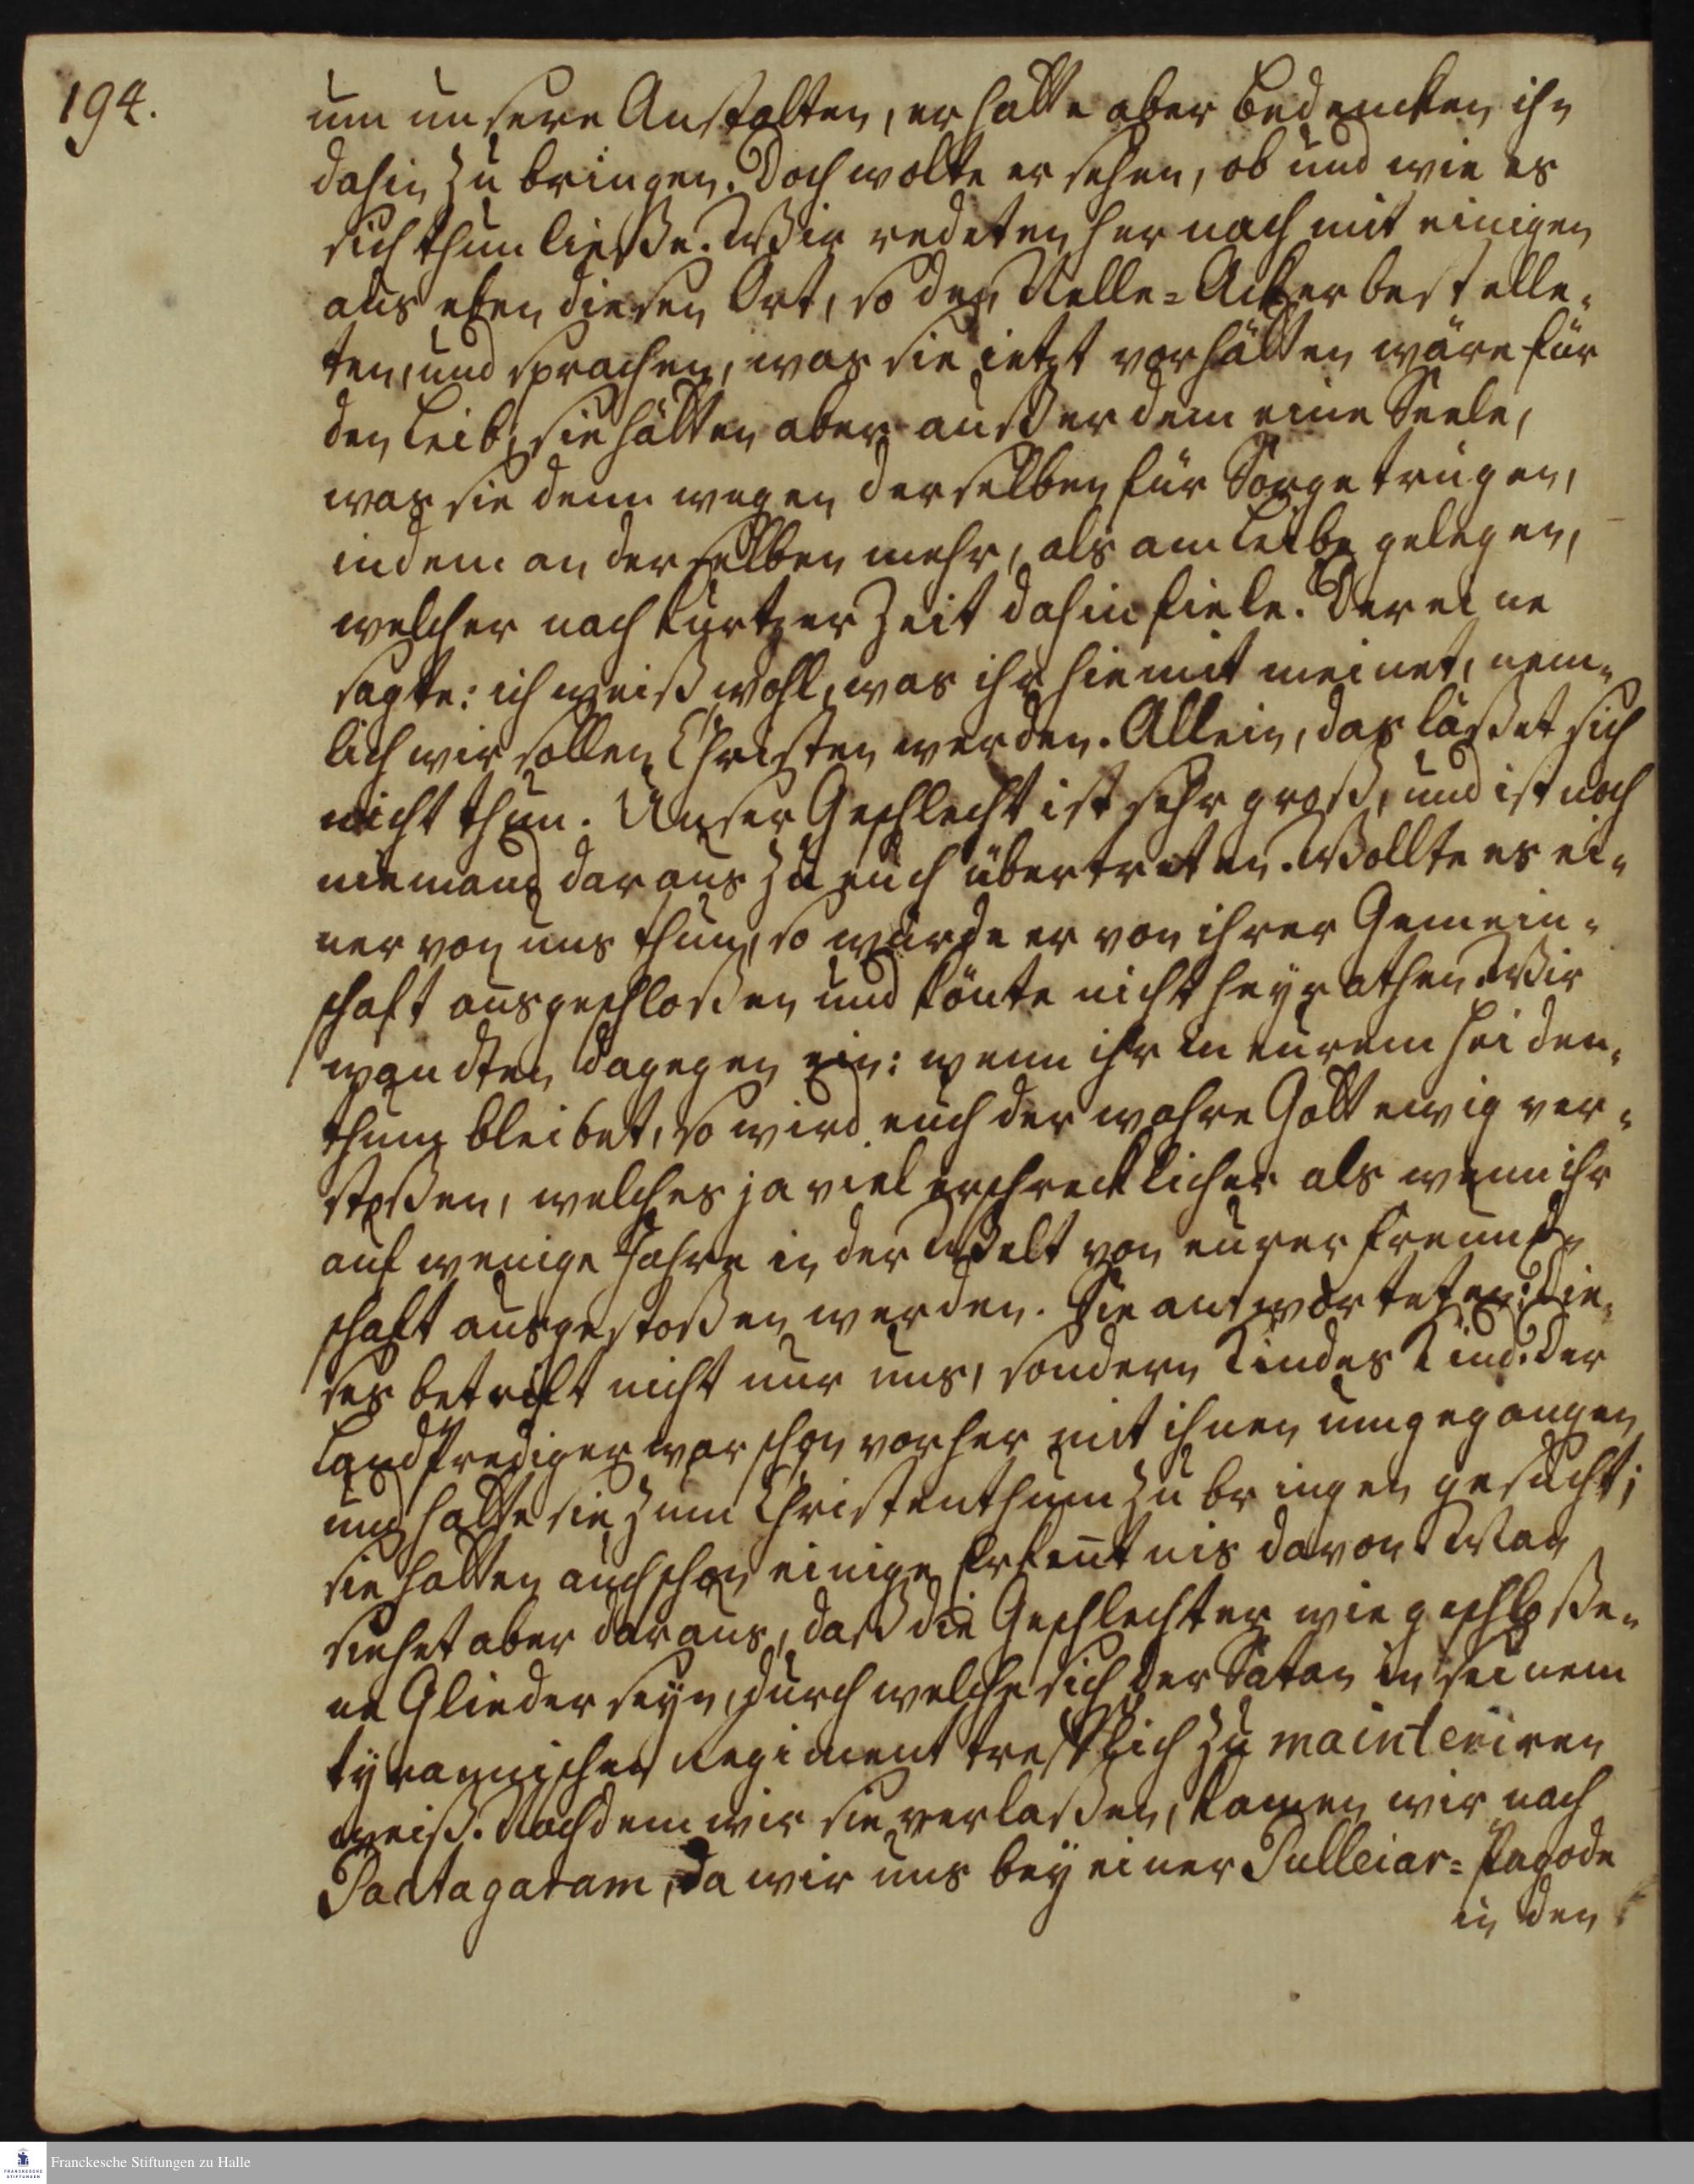 194.
um unsere Anstalten, er hätte aber Bedencken ihn
dahin zu bringen. Doch wolte er sehen, ob und wie es
sich thun ließe. Wir redeten hernach mit einigen
aus eben diesen Ort, so den Nelle-Acker bestelle-
ten, und sprachen, was sie ietzt vorhätten wäre für
den Leib, sie hätten aber außer dem eine Seele,
was sie denn wegen derselben für Sorge trügen,
indem an derselben mehr, als am Leibe gelegen,
welcher nach kurtzer Zeit dahin fiele. Der eine
sagte: ich weiß wohl, was ihr hiemit meinet, nem-
lich wir sollen Christen werden. Allein, das läßet sich
nicht thun. Unser Geschlecht ist sehr groß, und ist noch
niemand daraus zu euch übertreten. Wollte es ei-
ner von uns thun, so würde er von ihrer Gemein-
schaft ausgeschloßen und könte nicht heyrathen. Wir
wandten dagegen ein: wenn ihr in eurem Heiden-
thum bleibet, so wird euch der wahre Gott ewig ver-
stoßen, welches ja viel erschrecklicher als wenn ihr
auf wenige Jahre in der Welt von eurer Freund-
schaft ausgestoßen werden. Sie antworteten: Die-
ses betrift nicht nur uns, sondern Kindes Kind. Der
Landprediger war schon vorher mit ihnen umgegangen
und hatte sie zum Christenthum zu bringen gesucht;
sie hatten auch schon einige Erkentnis davon. Man
siehet aber daraus, daß die Geschlechter wie geschloße-
ne Glieder seyn, durch welche sich der Satan in seinem
tyrannischen Regiment treflich zu mainteniren
weiß. Nachdem wir sie verlaßen, kamen wir nach
da wir uns bey einer Pulleiar-Pagode
in den
Franckesche Stiftungen zu Halle
FRANCKESCHE
STIFTUNGEN